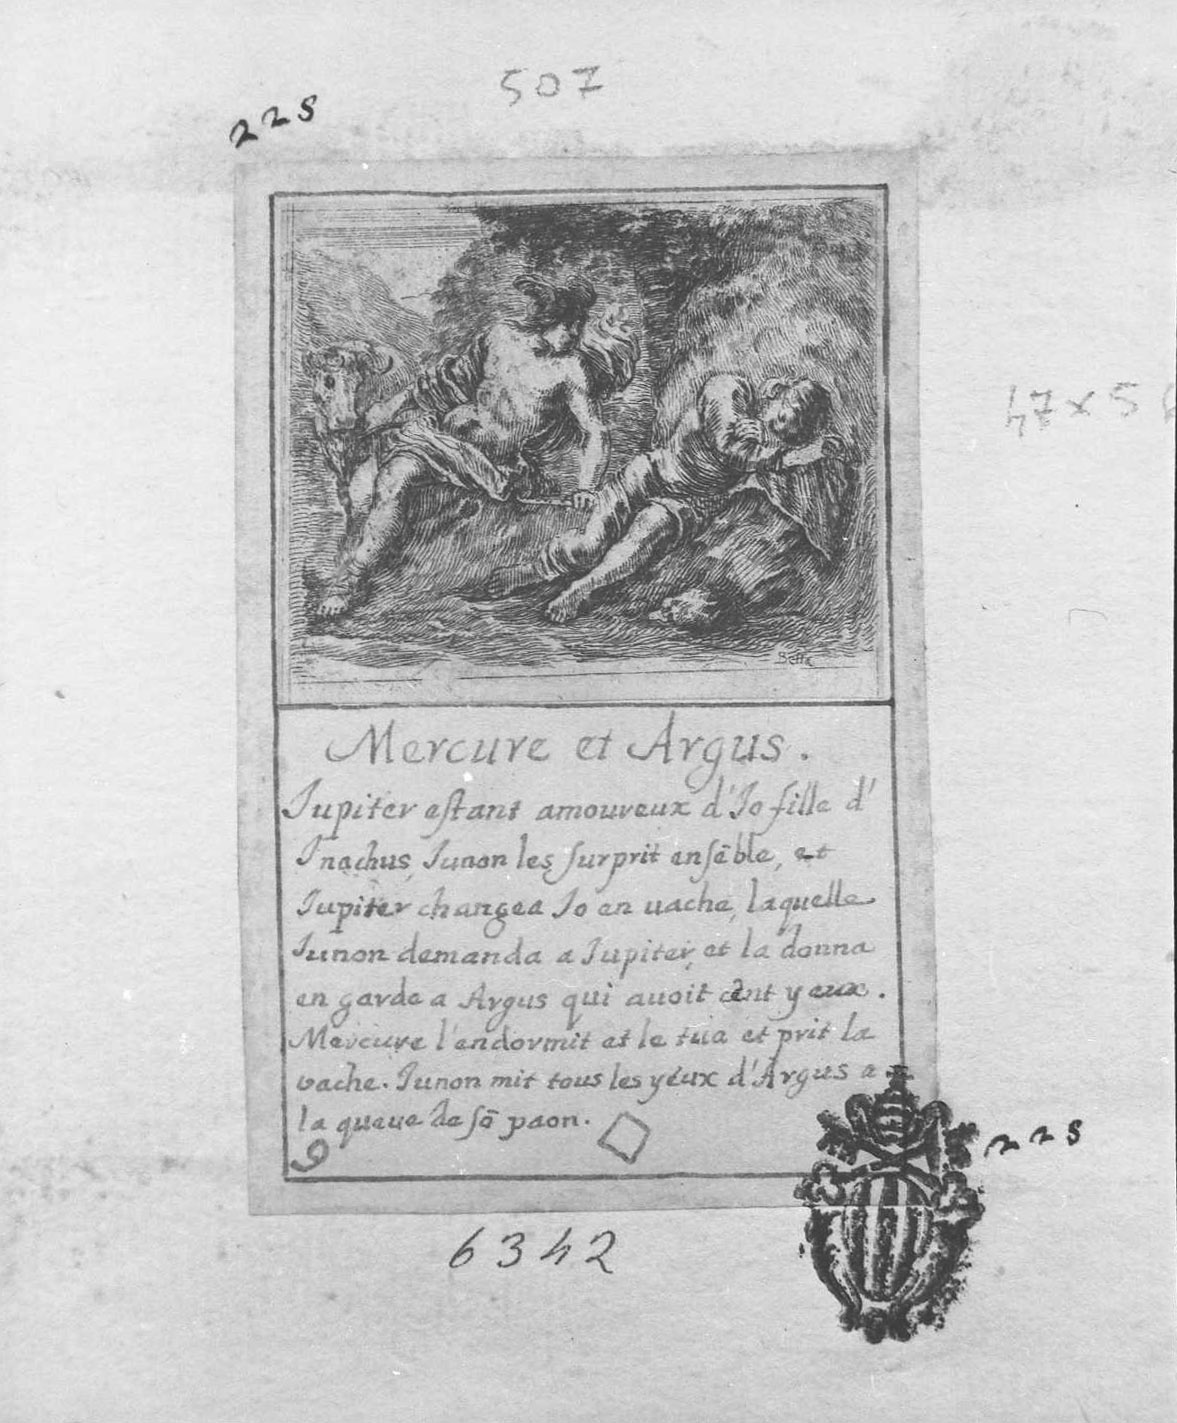 507
225
47 x 5
Bella
Mercure et Argus.
Jupiter eſtant amoureux d'Jo fille d'
Jnachus, Junon les ſurprit enſēble, et
Jupiter changea Jo en uache, laquelle
Junon demanda a Jupiter, et la donna
en garde a Argus qui auoit cent yeux.
Mercure l'endormit et le tua et prit la
vache. Junon mit tous les yeux d'Argus a
la queue de ſō paon.
9
225
6342